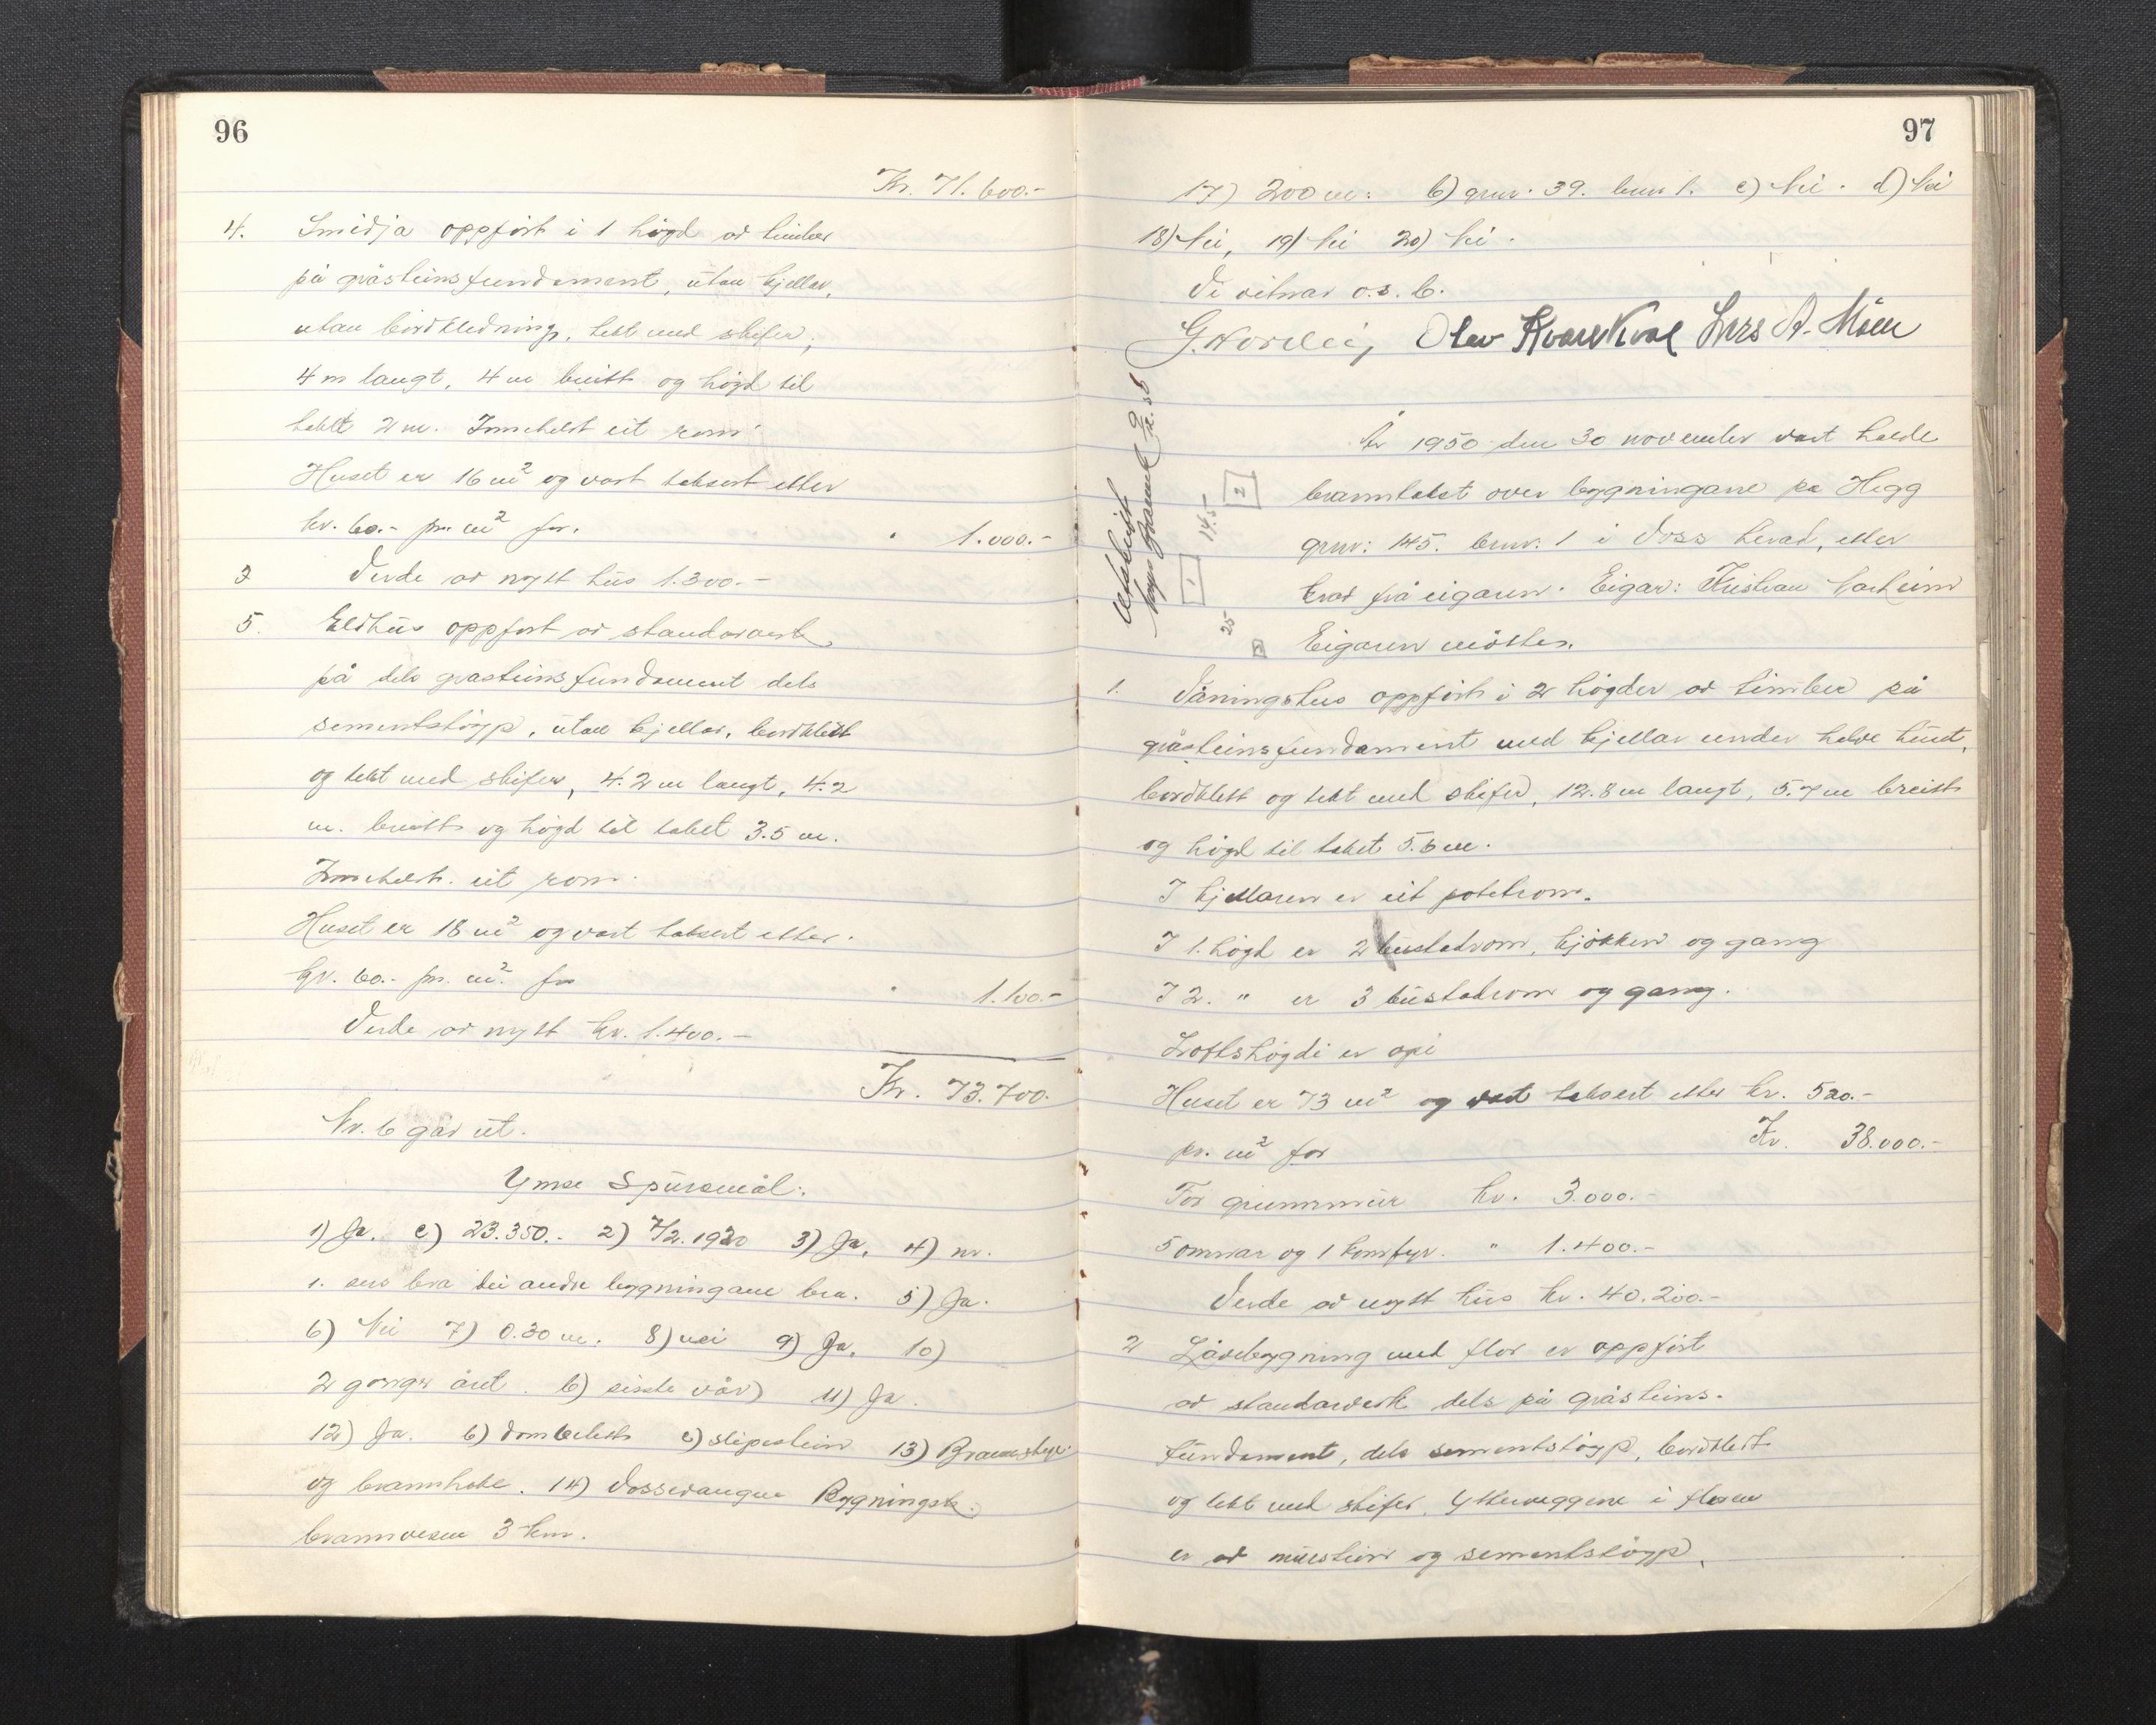 96
Kr. 71.600.-
4. Smidja oppført i 1 høgd av timber
på gråsteinsfundament, utan kjellar,
utan bordkledning, tekt med skifer,
4 m langt, 4 m breitt og høgd til
taket 2 m. Inneheld eit rom.
Huset er 16 m² og vart taksert etter
kr. 60.- pr. m² for. " 1.000.-
Verde av nytt hus 1.300.-
5. Eldhus oppført av standarverk
på dels gråsteinsfundament dels
sementstøyp, utan kjellar, bordkledt
og tekt med skifer, 4.2 m langt, 4.2
m. breitt og høgd til taket 3.5 m.
Inneheld. eit rom.
Huset er 18 m² og vart taksert etter.
kr. 60.- pr. m² for " 1.100.-
Verde av nytt kr. 1.400.-
Kr. 73.700.-
Nr. 6 går ut.
Ymse Spursmål:
1) Ja. c) 23.350.- 2) 7/2.1920 3) Ja. 4) nr.
1. sers bra dei andre bygningane bra. 5) Ja.
6) Nei 7) 0.30 m. 8) nei 9) Ja. 10)
2 gonger året. b) siste vår) 11) Ja.
12) Ja. b) c) slipestein 13)
og brannhake. 14) Vossevangen Bygningsk.
brannvesen 3 km.
97
17) 200 m. b) gnr. 39. bnr 1. c) Nei. d) Nei
18) Nei, 19) Nei 20) Nei.
Vi vitnar o.s.b.
G. Nordli, Olav Kvarekval Lars A. Møen
Utskrift
2
14.5
1
25
3
År 1950 den 30 november vart halde
branntakst over bygningane på Hegg
gnr: 145. bnr: 1 i Voss herad, etter
krav frå eigaren. Eigar: Kristian
Eigaren møtte.
1. Våningshus oppført i 2 høgder av timber på
gråsteinsfundament med kjellar under halve huset,
bordkledt og tekt med skifer, 12.8 m langt, 5.7 m breitt
og høgd til taket 5.6 m.
I kjellaren er eit potetrom.
I 1. høgd er 2 bustadrom, kjøkken og gang
I 2. " er 3 bustadrom og gang.
Loftshøgdi er opi
Huset er 73 m² og vart taksert etter kr. 520.-
pr. m² for Kr. 38.000.-
For grunnmur kr. 3.000.-
5 omnar og 1 komfyr. " 1.400.-
Verde av nytt hus kr. 40.200.-
2 Løebygning med flor er oppført
av standarverk dels på gråsteins-
fundament, dels sementstøyp, bordkledt
og tekt med skifer. Ytterveggene i floren
er av murstein og sementstøyp.